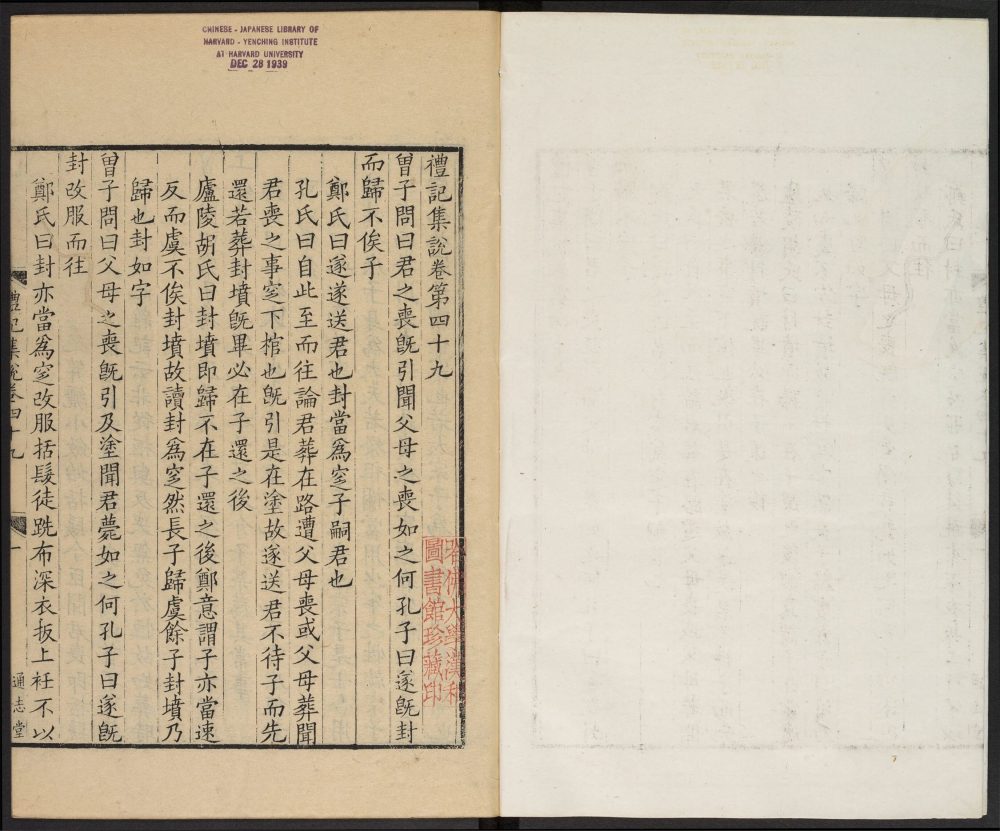 CHINESE - JAPANESE LIBRARY OF
HARVARD - YENCHING INSTITUTE
AT HARVARD UNIVERSITY
DEC 28 1939
禮記集說卷第四十九
曾子問曰君之喪旣引聞父母之喪如之何孔子曰遂旣封
而歸不俟子
鄭氏曰遂遂送君也封當爲窆子嗣君也
孔氏曰自此至而往論君葬在路遭父母喪或父母葬聞
君喪之事窆下棺也旣引是在塗故遂送君不待子而先
還若葬封墳旣畢必在子還之後
廬陵胡氏曰封墳即歸不在子還之後鄭意謂子亦當速
反而虞不俟封墳故讀封爲窆然長子歸虞餘子封墳乃
歸也封如字
曾子問曰父母之喪旣引及塗聞君薨如之何孔子曰遂旣
封改服而往
鄭氏曰封亦當爲窆改服括髮徒跣布深衣扱上衽不以
禮記集說卷四十九
一
通志堂
哈佛大學漢和
圖書館珍藏印